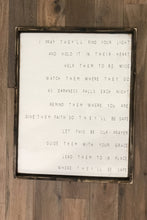 I PRAY THEY'LL FIND YOUR LIGHT
AND HOLD IT IN THEIR HEART
HELP THEM TO BE WISE
WATCH THEM WHERE THEY GO
AS DARKNESS FALLS EACH NIGHT
REMIND THEM WHERE YOU ARE
GIVE THEM FAITH SO THEY'LL BE SAFE
LET THIS BE OUR PRAYER
GUIDE THEM WITH YOUR GRACE
LEAD THEM TO A PLACE
WHERE THEY'LL BE SAFE